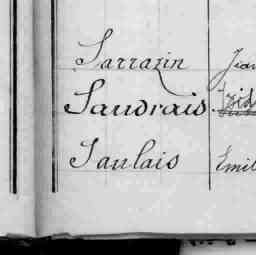 Sarrazin Jean
Saudrais. Isid
Saulais Emil